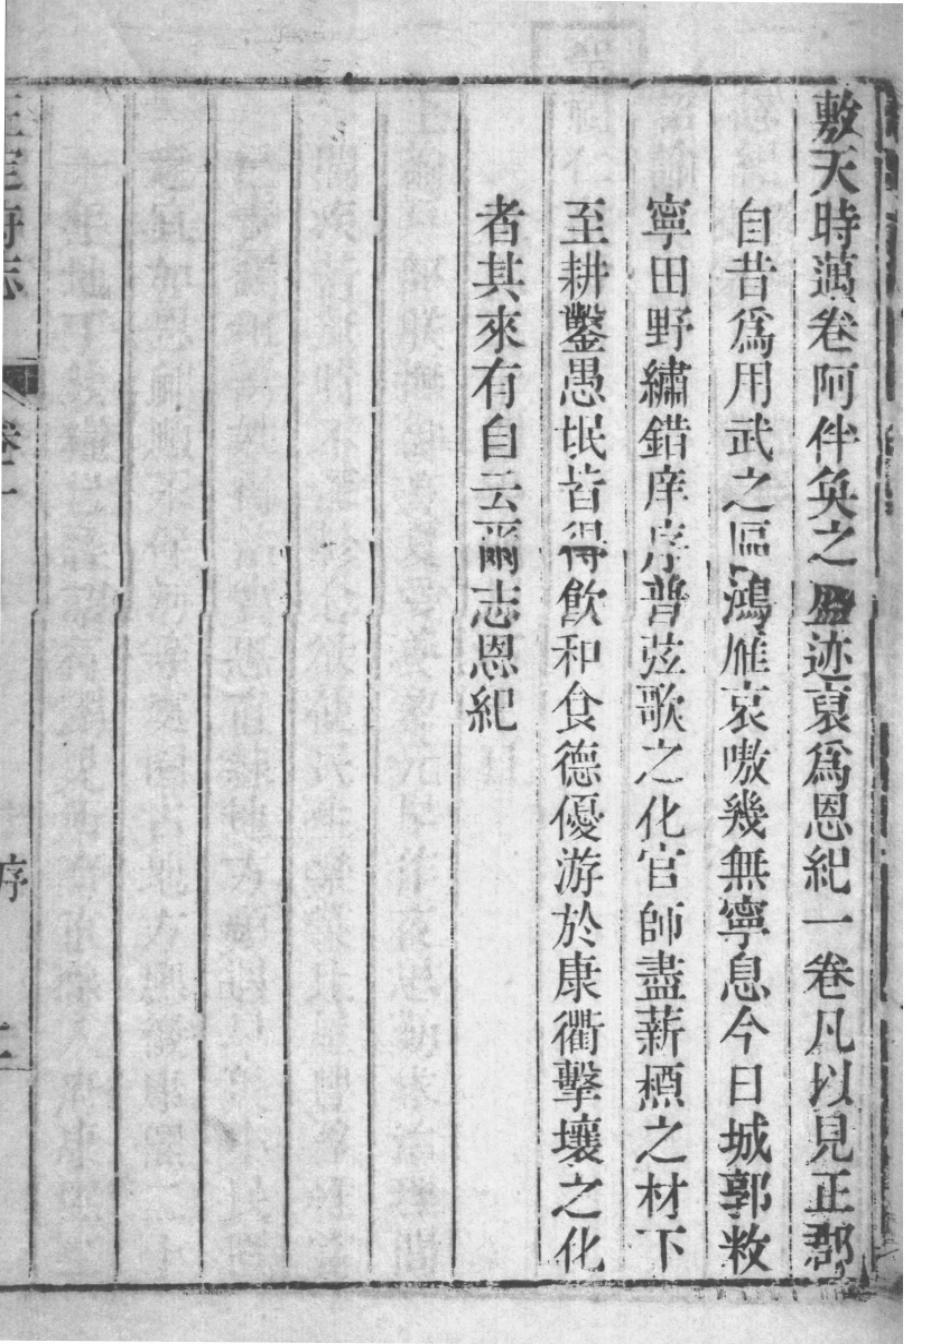 敷天時邁卷阿伴奐之盛迹裒爲恩紀一卷凡以見正郡
自昔爲用武之區鴻雁哀嗷幾無寧息今日城郭敉
寧田野繡錯庠序普弦歌之化官師盡薪槱之材下
至耕鑿愚氓皆得飮和食德優游於康衢擊壤之化
者其來有自云爾志恩紀
正定府志
卷一
序
二